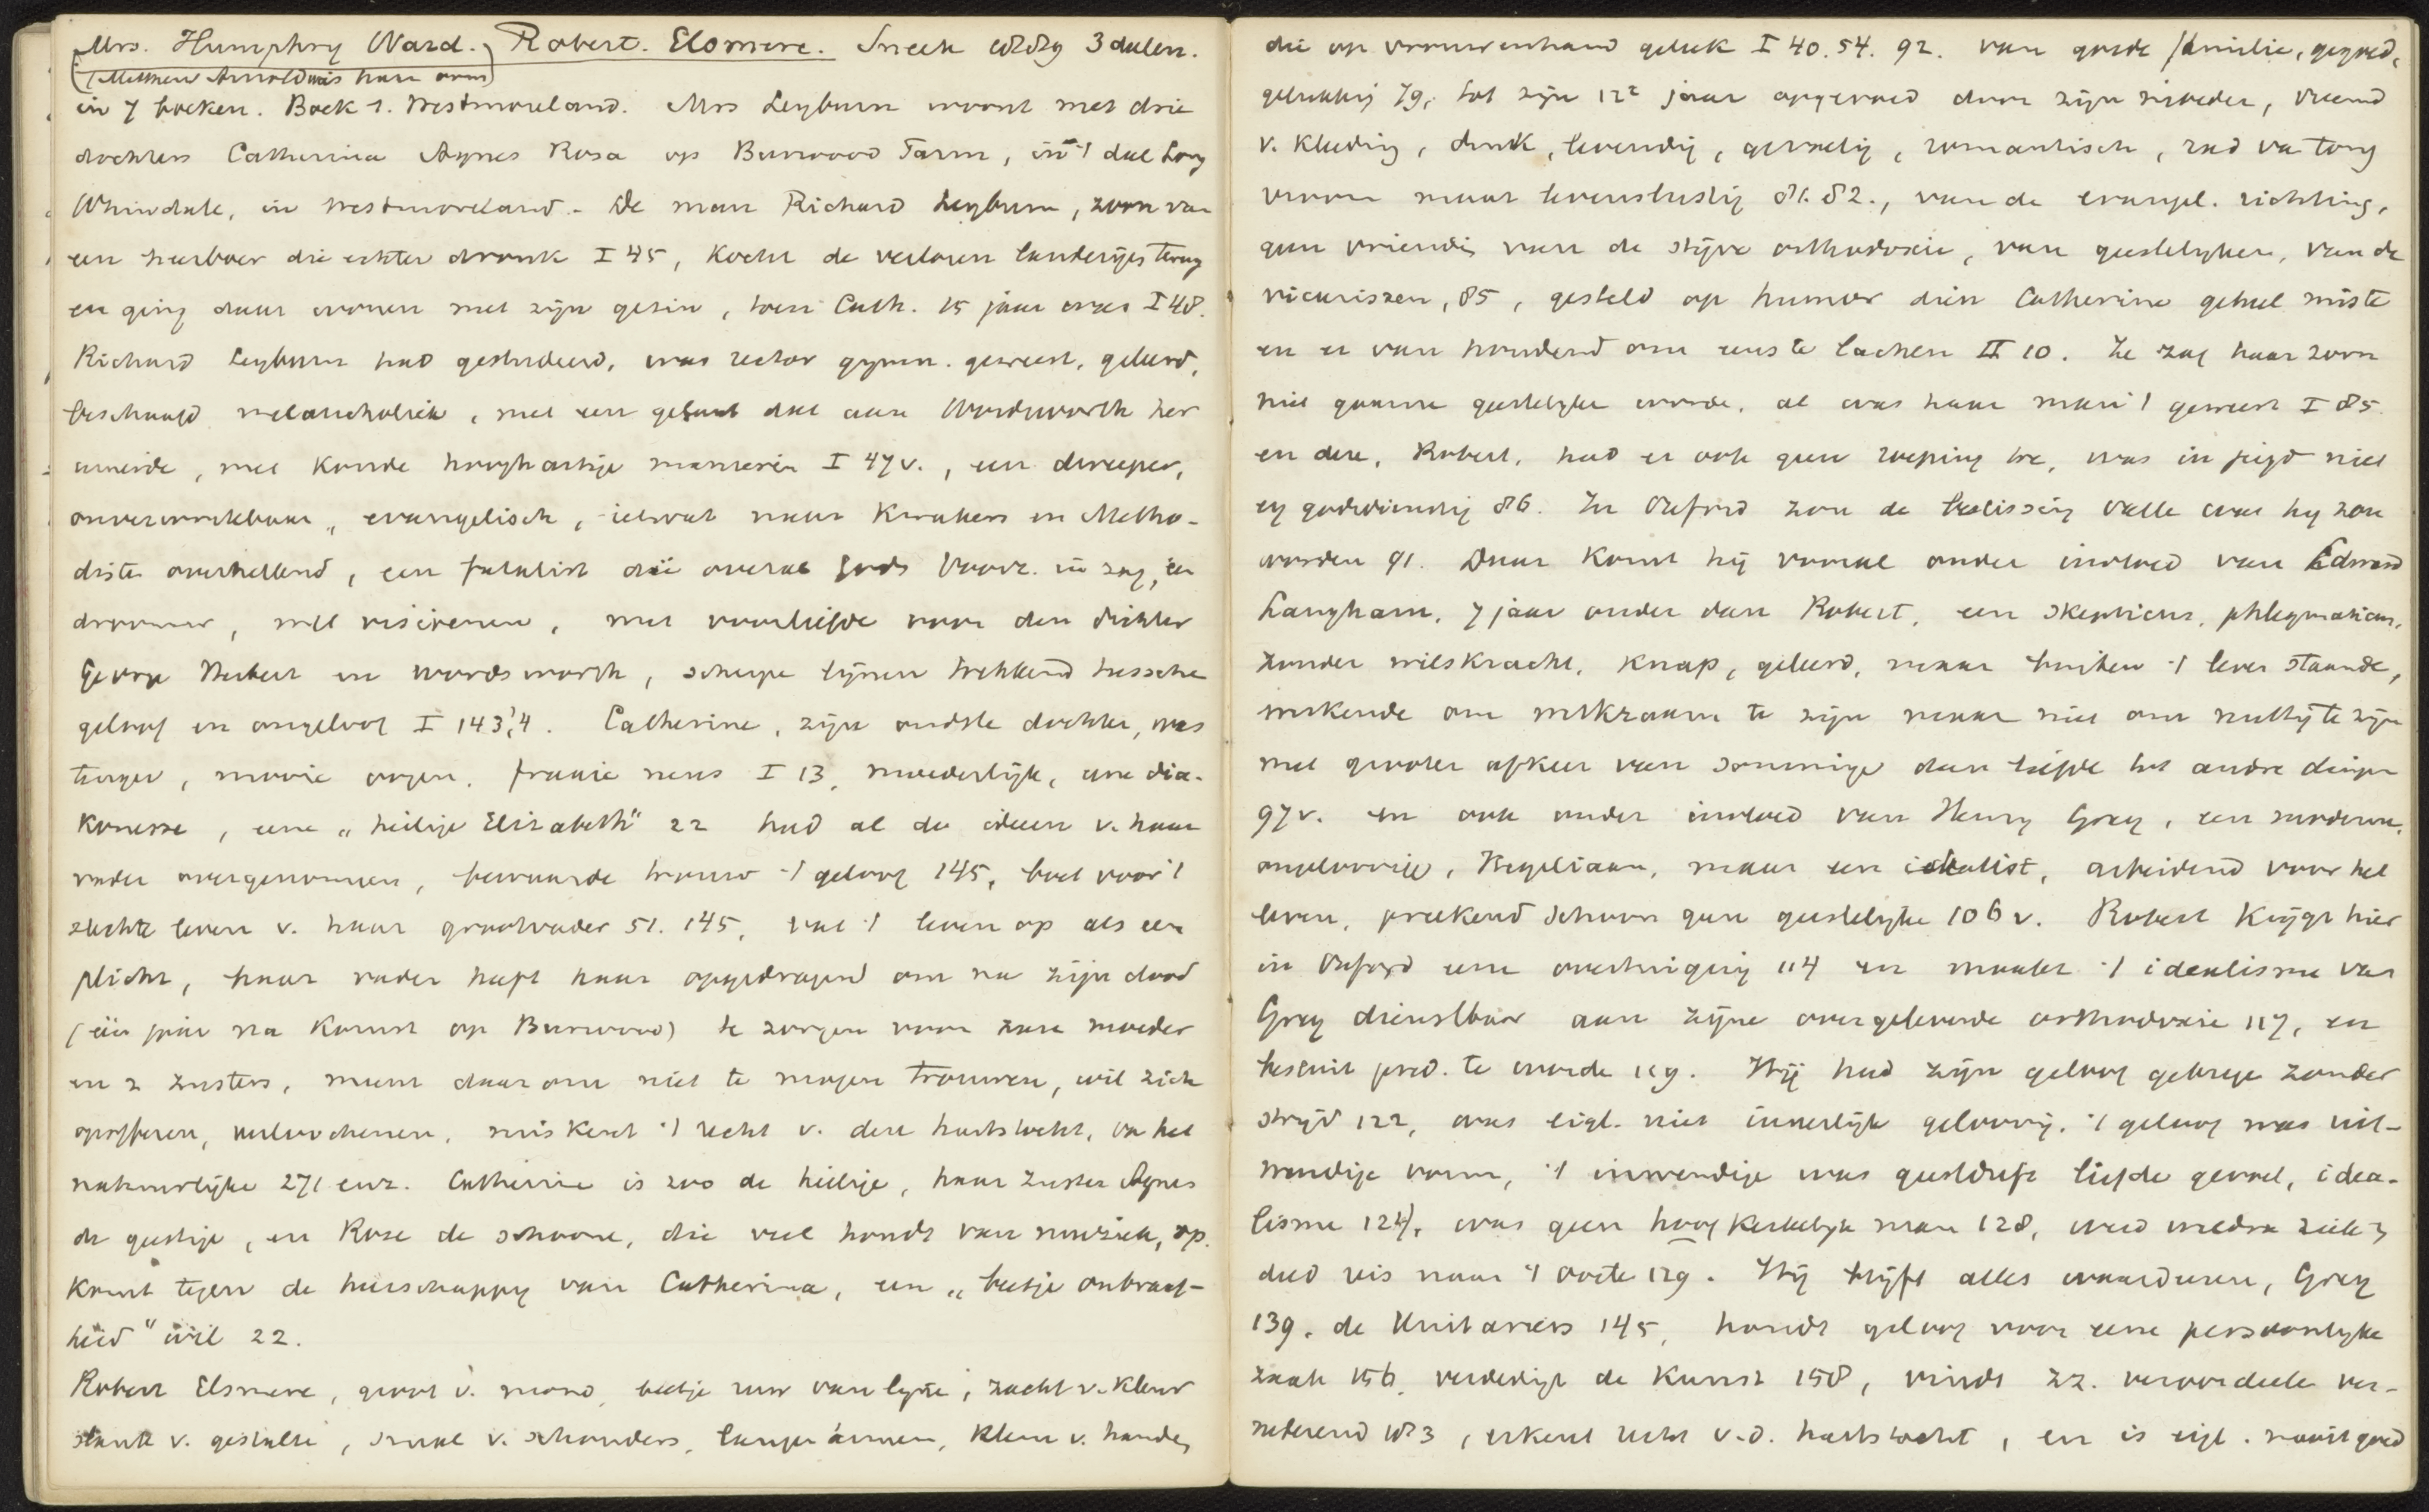 Mrs. Humphry Ward. Robert. Elsmere. Sneek 1889 3 delen.
(Matthew Arnold was haar oom)
in 7 boeken. Boek 1. Westmoreland. Mrs Leyburn woont met drie
dochters Catherina Agnes Rosa op Burwood Farm, in 't dal Long
Whindale, in Westmoreland. De man Richard Leyburn, zoon van
een heerboer die echter dronk I 45, kocht de verloren landerijen terug
en ging daar wonen met zijn gezin, toen Cath. 15 jaar was I 48.
Richard Leyburn had gestudeerd, was rector gymn. geweest, geleerd,
beschaafd melancholiek, met een gelaat dat aan Wordsworth her
innerde, met koude hooghartige manieren I 47v., een dweeper,
onverzoenlijk, evangelisch, ietwat naar Kwakers en Metho-
disten overhellend, een fatalist die overal Gods Voorz. in zag, een
droomer, met visioenen, met voorliefde voor den dichter
George Herbert en Wordsworth, scherpe lijnen trekkend tusschen
geloof en ongeloof I 143, 4. Catherine, zijn oudste dochter, was
, mooie oogen, fraaie neus I 13, moederlijk, eene dia-
konesse, eene „heilige Elizabeth" 22 had al de ideen v. haar
vader overgenomen, bewaarde trouw 't geloof 145, boet voor 't
slechte leven v. haar grootvader 51. 145, vat 't leven op als een
plicht, haar vader heeft haar opgedragen om na zijn dood
(een jaar na komst op Burwood) te zorgen voor hare moeder
en 2 zusters, meent daarom niet te mogen trouwen, wil zich
opofferen, verloochenen, miskent 't recht v. den hartstocht, van het
natuurlijke 271 enz. Catherine is zoo de heilige, haar zuster Agnes
de geestige, en Rose de schoone, die veel houdt van muziek, op
komt tegen de heerschappij van Catherina, een „beetje ondraag-
heid" wil 22.
Robert Elsmere, groot v. mond, beetje ruw van lijn, zacht v. kleur
slank v. gestalte, smal v. schouders, lange armen, klein v. handen,
die op vrouwenhand geleek I 40. 54. 92. van goede familie, gegoed,
gelukkig 79, tot zijn 12e jaar opgevoed door zijn moeder, vreemd
v. kleding, druk, levendig, geestig, romantisch, rad van tong
vroom maar levenslustig 81. 82., van de evangel. richting,
geen vriendin van de stijve orthodoxie, van geestelijken, van de
vicarissen, 85, gesteld op humor dien Catherine geheel miste
en er van houdend om eens te lachen II 10. Ze zag haar zoon
niet gaarne geestelijke worden, al was haar man 't geweest I 85
en deze, Robert, had er ook geen roeping toe, was in jeugd niet
erg godsdienstig 86. In Oxford zou de beslissing vallen wat hij zou
worden 91. Daar komt hij vooral onder invloed van Edward
Langham, 7 jaar ouder dan Robert, een skepticus, phlegmaticus,
zonder wilskracht, knap, geleerd, maar buiten 't leven staande,
werkende om werkzaam te zijn maar niet om nuttig te zijn
met grooter afkeer van sommige dan liefde tot andre dingen
97v. en ook onder invloed van Henry Grey, een moderne,
ongeloovige, Hegeliaan, maar een idealist, arbeidend voor het
leven, preekend schoon geen geestelijke 106v. Robert krijgt hier
in Oxford eene overtuiging 114 en maakt 't idealisme van
Grey dienstbaar aan zijne overgeleverde orthodoxie 117, en
besluit pred. te worden 119. Hij had zijn geloof gekregen zonder
strijd 122, was eigl. niet innerlijk geloovig, 't geloof was uit-
wendige vorm, 't inwendige was geestdrift liefde gevoel, idea-
lisme 124, was geen hoog kerkelijk man 128, werd weldra ziek en
deed reis naar 't Oosten 129. Hij blijft alles waardeeren, Grey
139, de Unitariers 145, houdt geloof voor eene persoonlijke
zaak 156, verdedigt de kunst 158, vindt zz. veroordeelen ver-
nederend 183, erkent recht v.d. hartstocht, en is eigl. nooit goed